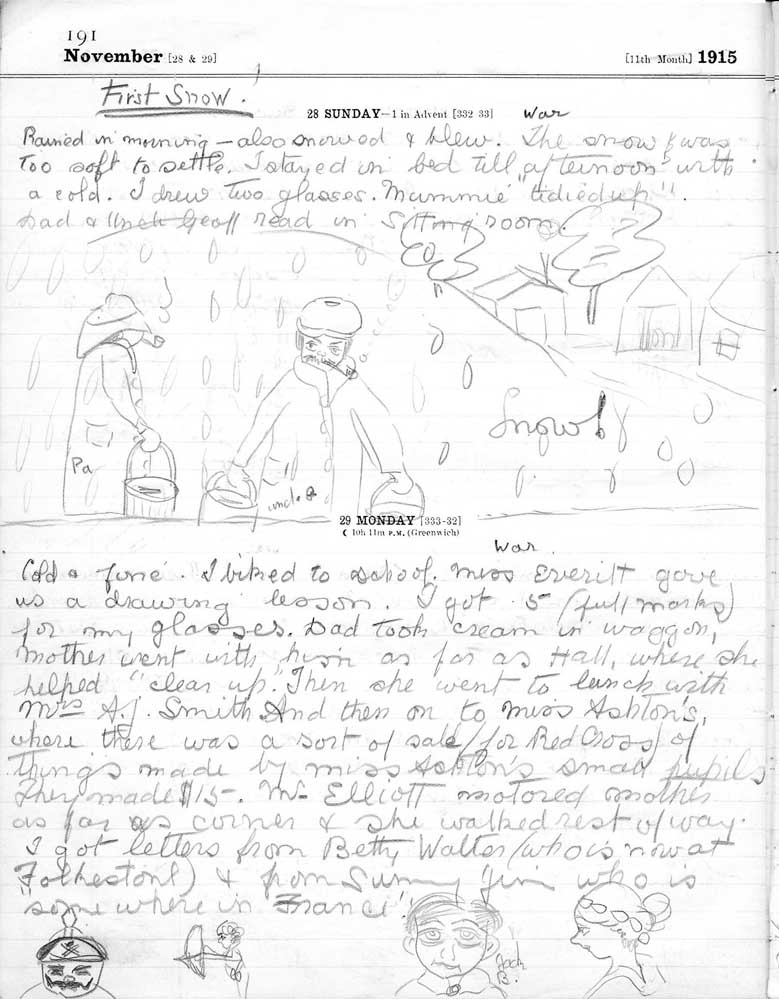 191
November [28 & 29] [11th Month] 1915
First Snow.
28 SUNDAY—1 in Advent [332-33] War
Rained in morning — also snowed & blew. The snow was
too soft to settle. I stayed in bed till afternoon with
a cold. I drew two glasses. Mummie "tidied up".
Dad & Uncle Geoff read in Sitting room.
Snow!
Pa
uncle G
29 MONDAY [333-32]
☾ 10h 11m P.M. (Greenwich)
War.
Cold & fine. I biked to school. Miss Everitt gave
us a drawing lesson. I got 5 (full marks)
for my glasses. Dad took cream in waggon,
Mother went with him as far as Hall, where she
helped "clear up". Then she went to lunch with
Mrs A.J. Smith And then on to Miss Ashton's,
where there was a sort of sale (for Red Cross) of
things made by Miss Ashton's small pupils
They made $15-. Mr Elliott motored mother
as far as corner & she walked rest of way.
I got letters from Betty Walter (who is now at
Folkestone) & from Sunny Jim who is
"somewhere in France".
Jack
B.